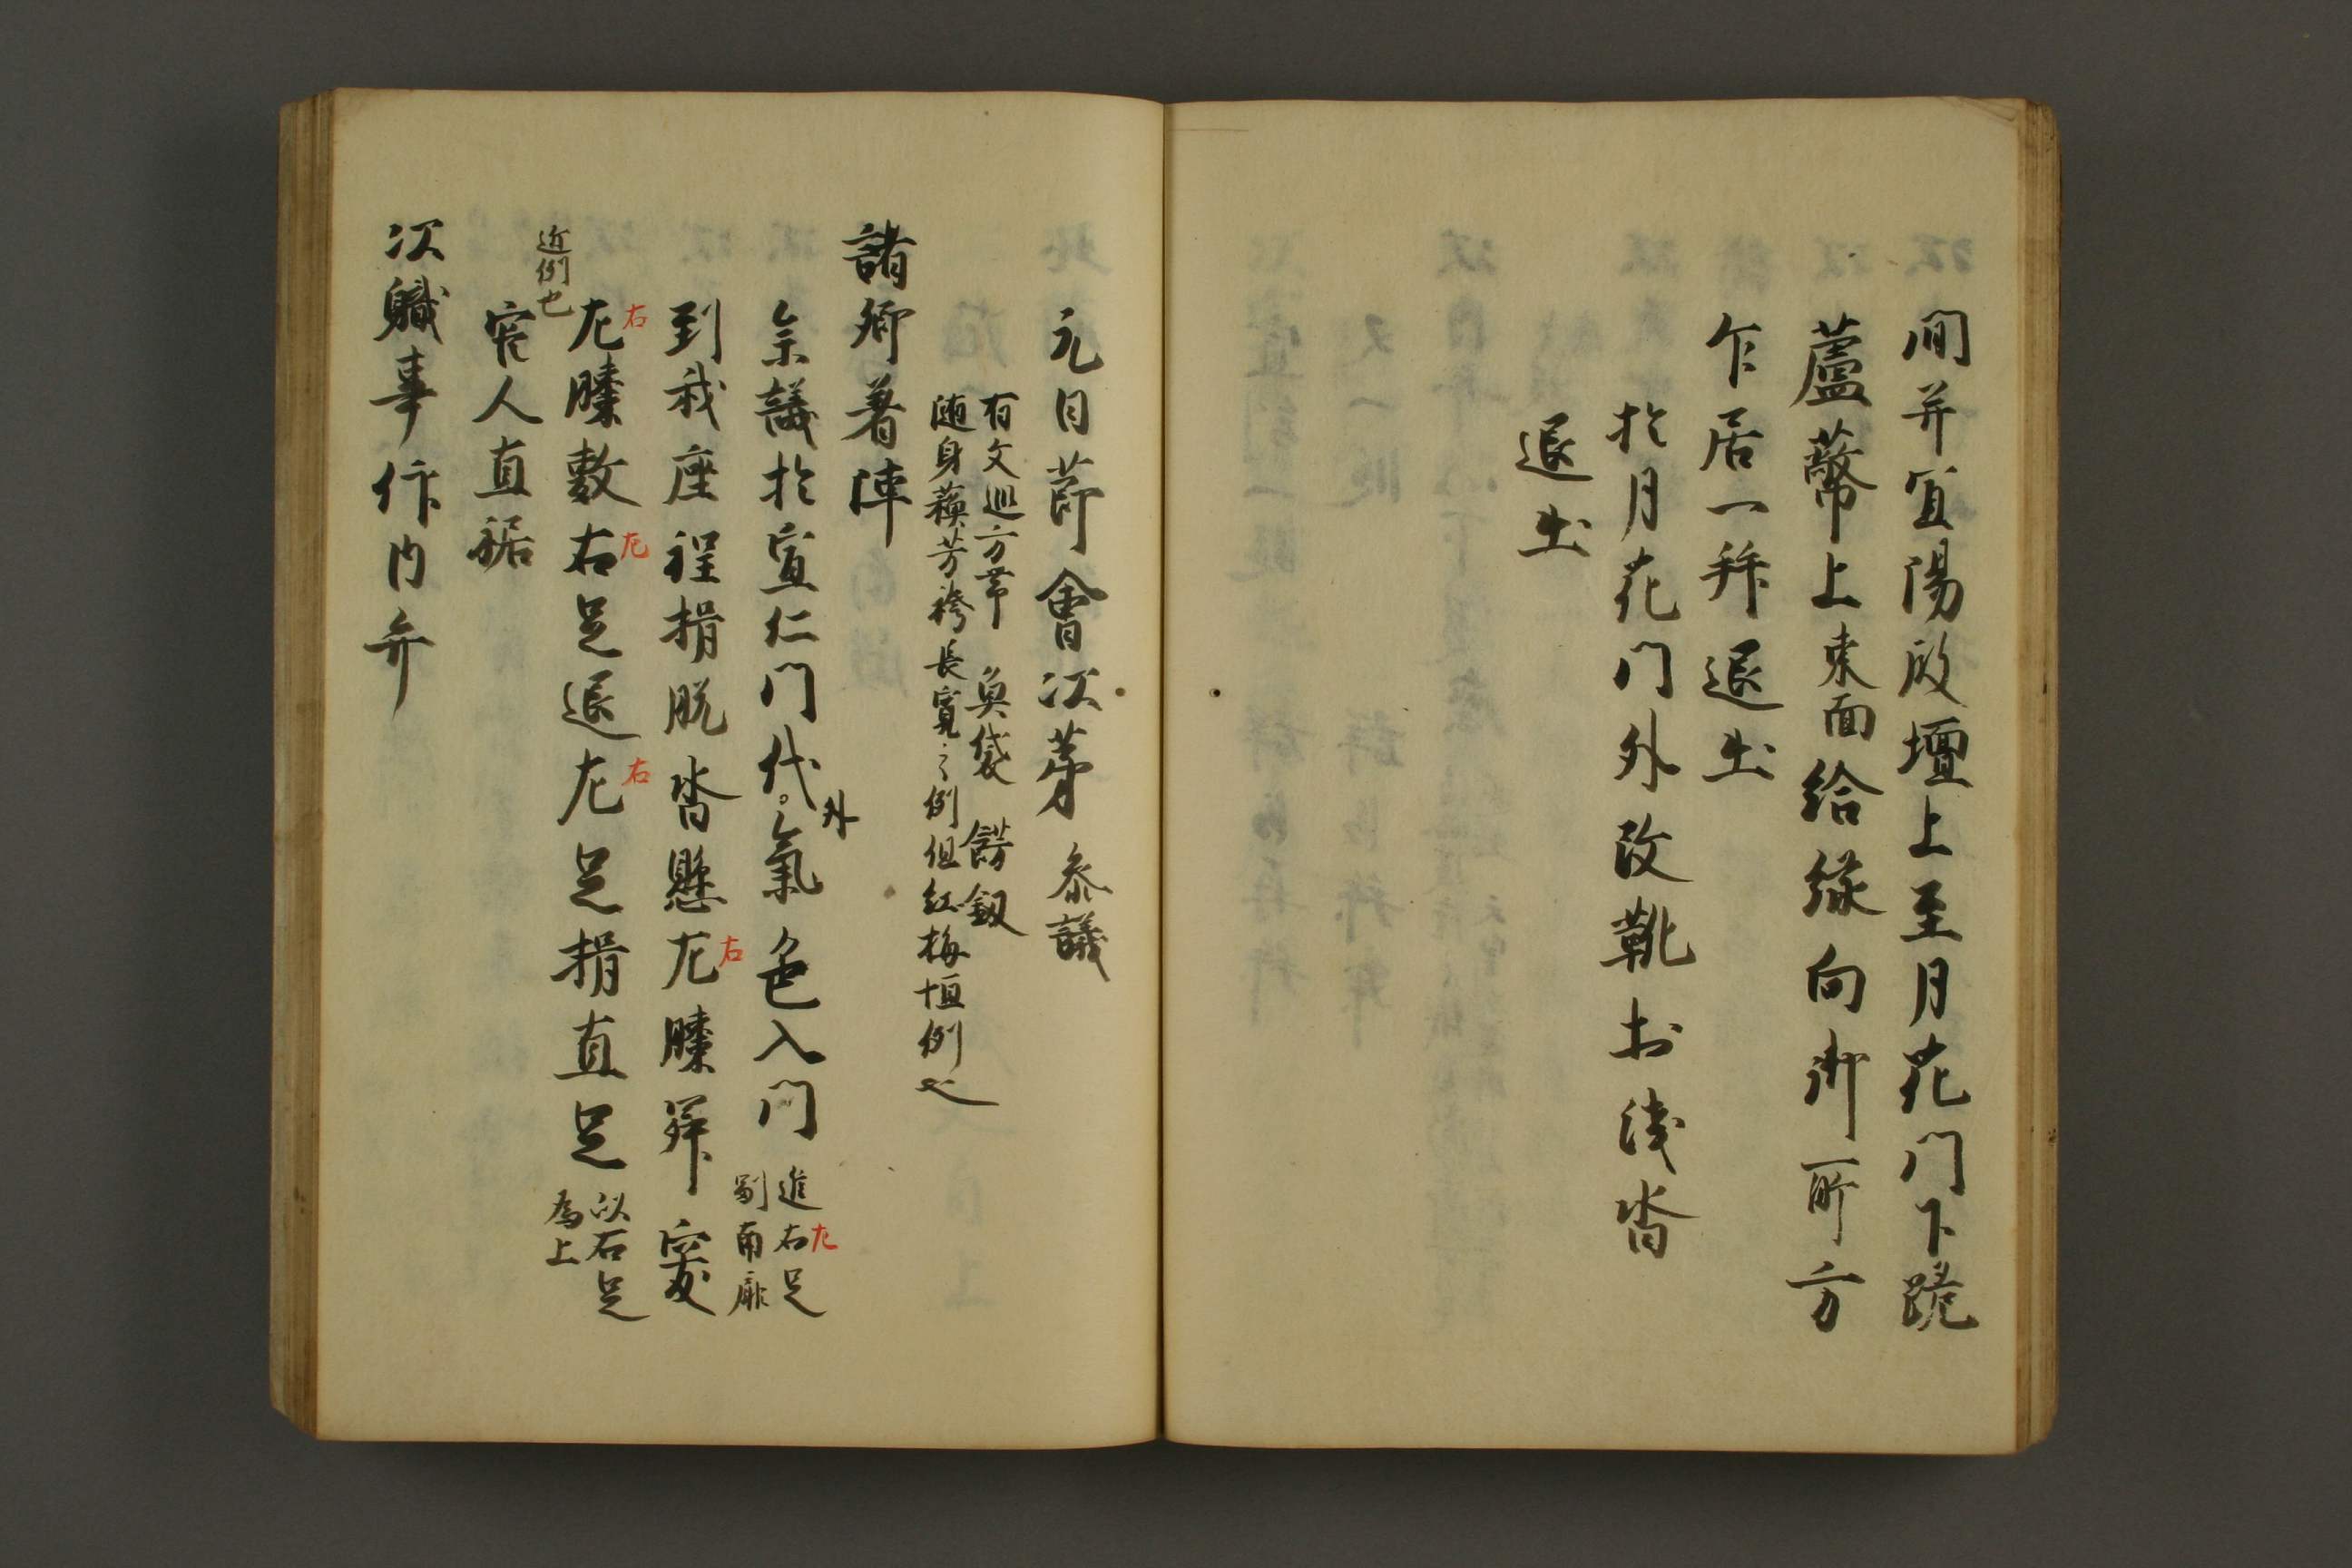 間并宜陽殿壇上至月花門下跪
蘆弊上東面給祿向御所方
乍居一拜退出
於月花門外改靴於淺沓
退出
元日節會次第 参議
有文巡方帯 魚袋 餝釼
随身蘓芳袴長寛之例但紅梅恒例也
諸卿着陣
参議於宣仁門代外氣色入門 進右足
左
副南廊
到我座程揖脱沓懸左膝昇突
右
左膝敷右足退左足揖直足 以右足
右 左 右
為上
近例也
官人直裾
次軄事仰内弁